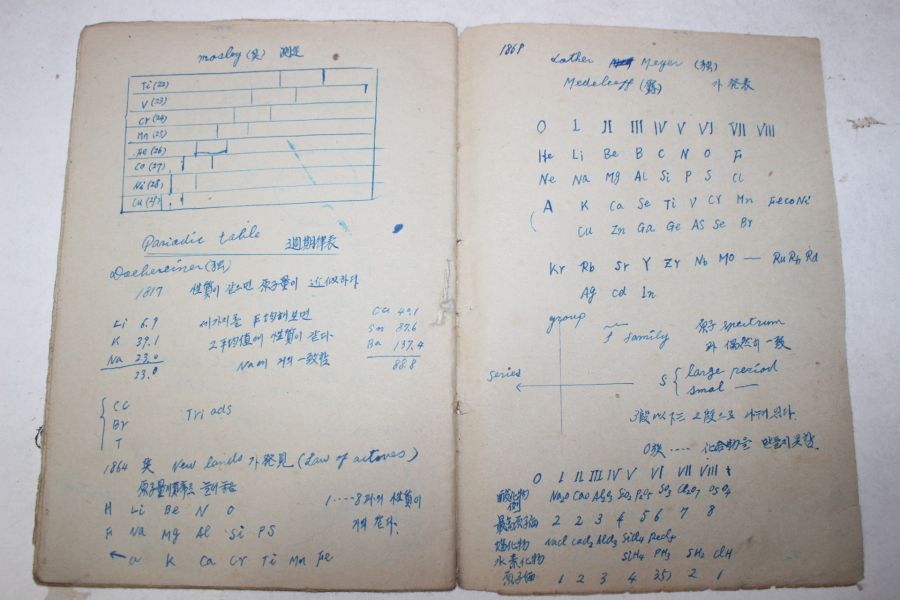 mosley (英) 測定
Ti (22)
V (23)
Cr (24)
Mn (25)
Fe (26)
Co (27)
Ni (28)
Cu (29)
Pariadic table 週期律表
Doehereiner (独)
1817 性質이 같으면 原子量이 近似하다
Li 6.9 세가지를 平均해보면 Ca 40.1
K 39.1 2平均値에 性質이 같다. Sr 87.6
Na 23.0 Na에 거의 一致함 Ba 137.4
23.0 88.8
Cl
Br Triads
I
1864 英 New lands 가 発見 (Law of actoves)
原子量
H Li Be N O 1‥‥8 性質이
F Na Mg Al Si P S 거의 같다.
Cl K Ca Cr Ti Mn Fe
1869 Lother Meyer (独)
Medeleeff (露) 가 発表
O I II III IV V VI VII VIII
He Li Be B C N O F
Ne Na Mg Al Si P S Cl
A K Ca Se Ti V Cr Mn Fe Co Ni
Cu Zn Ga Ge AS Se Br
Kr Rb Sr Y Zr Nb MO — Ru Rh Pd
Ag Cd In
group
family 原子 spectrum
와 偶然히 一致
series S { large period
smal —
3段以下는 2段으로 나누어 있다.
0族‥‥ 化合物을 만들지 못함
O I II III IV V VI VII VIII
酸化物 例 Na2O CaO Al2O3 SiO2 P2O5 SO3 Cl2O7 OsO4
最高原子価 2 2 3 4 5 6 7 8
塩化物 NaCl CaCl2 AlCl3 SiCl4
水素化物 SiH4 PH3 SH2 ClH
原子価 1 2 3 4 3 2 1